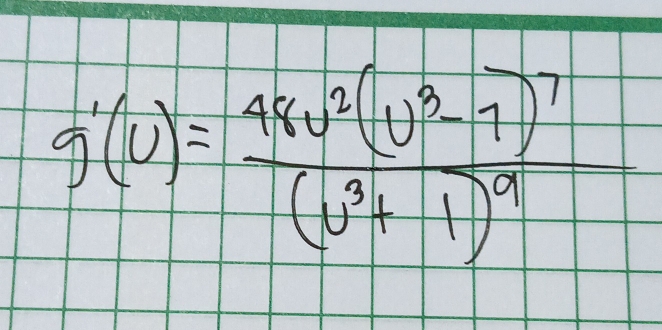 g'(u) = \frac{48u^2(u^3 - 1)^7}{(u^3 + 1)^9}